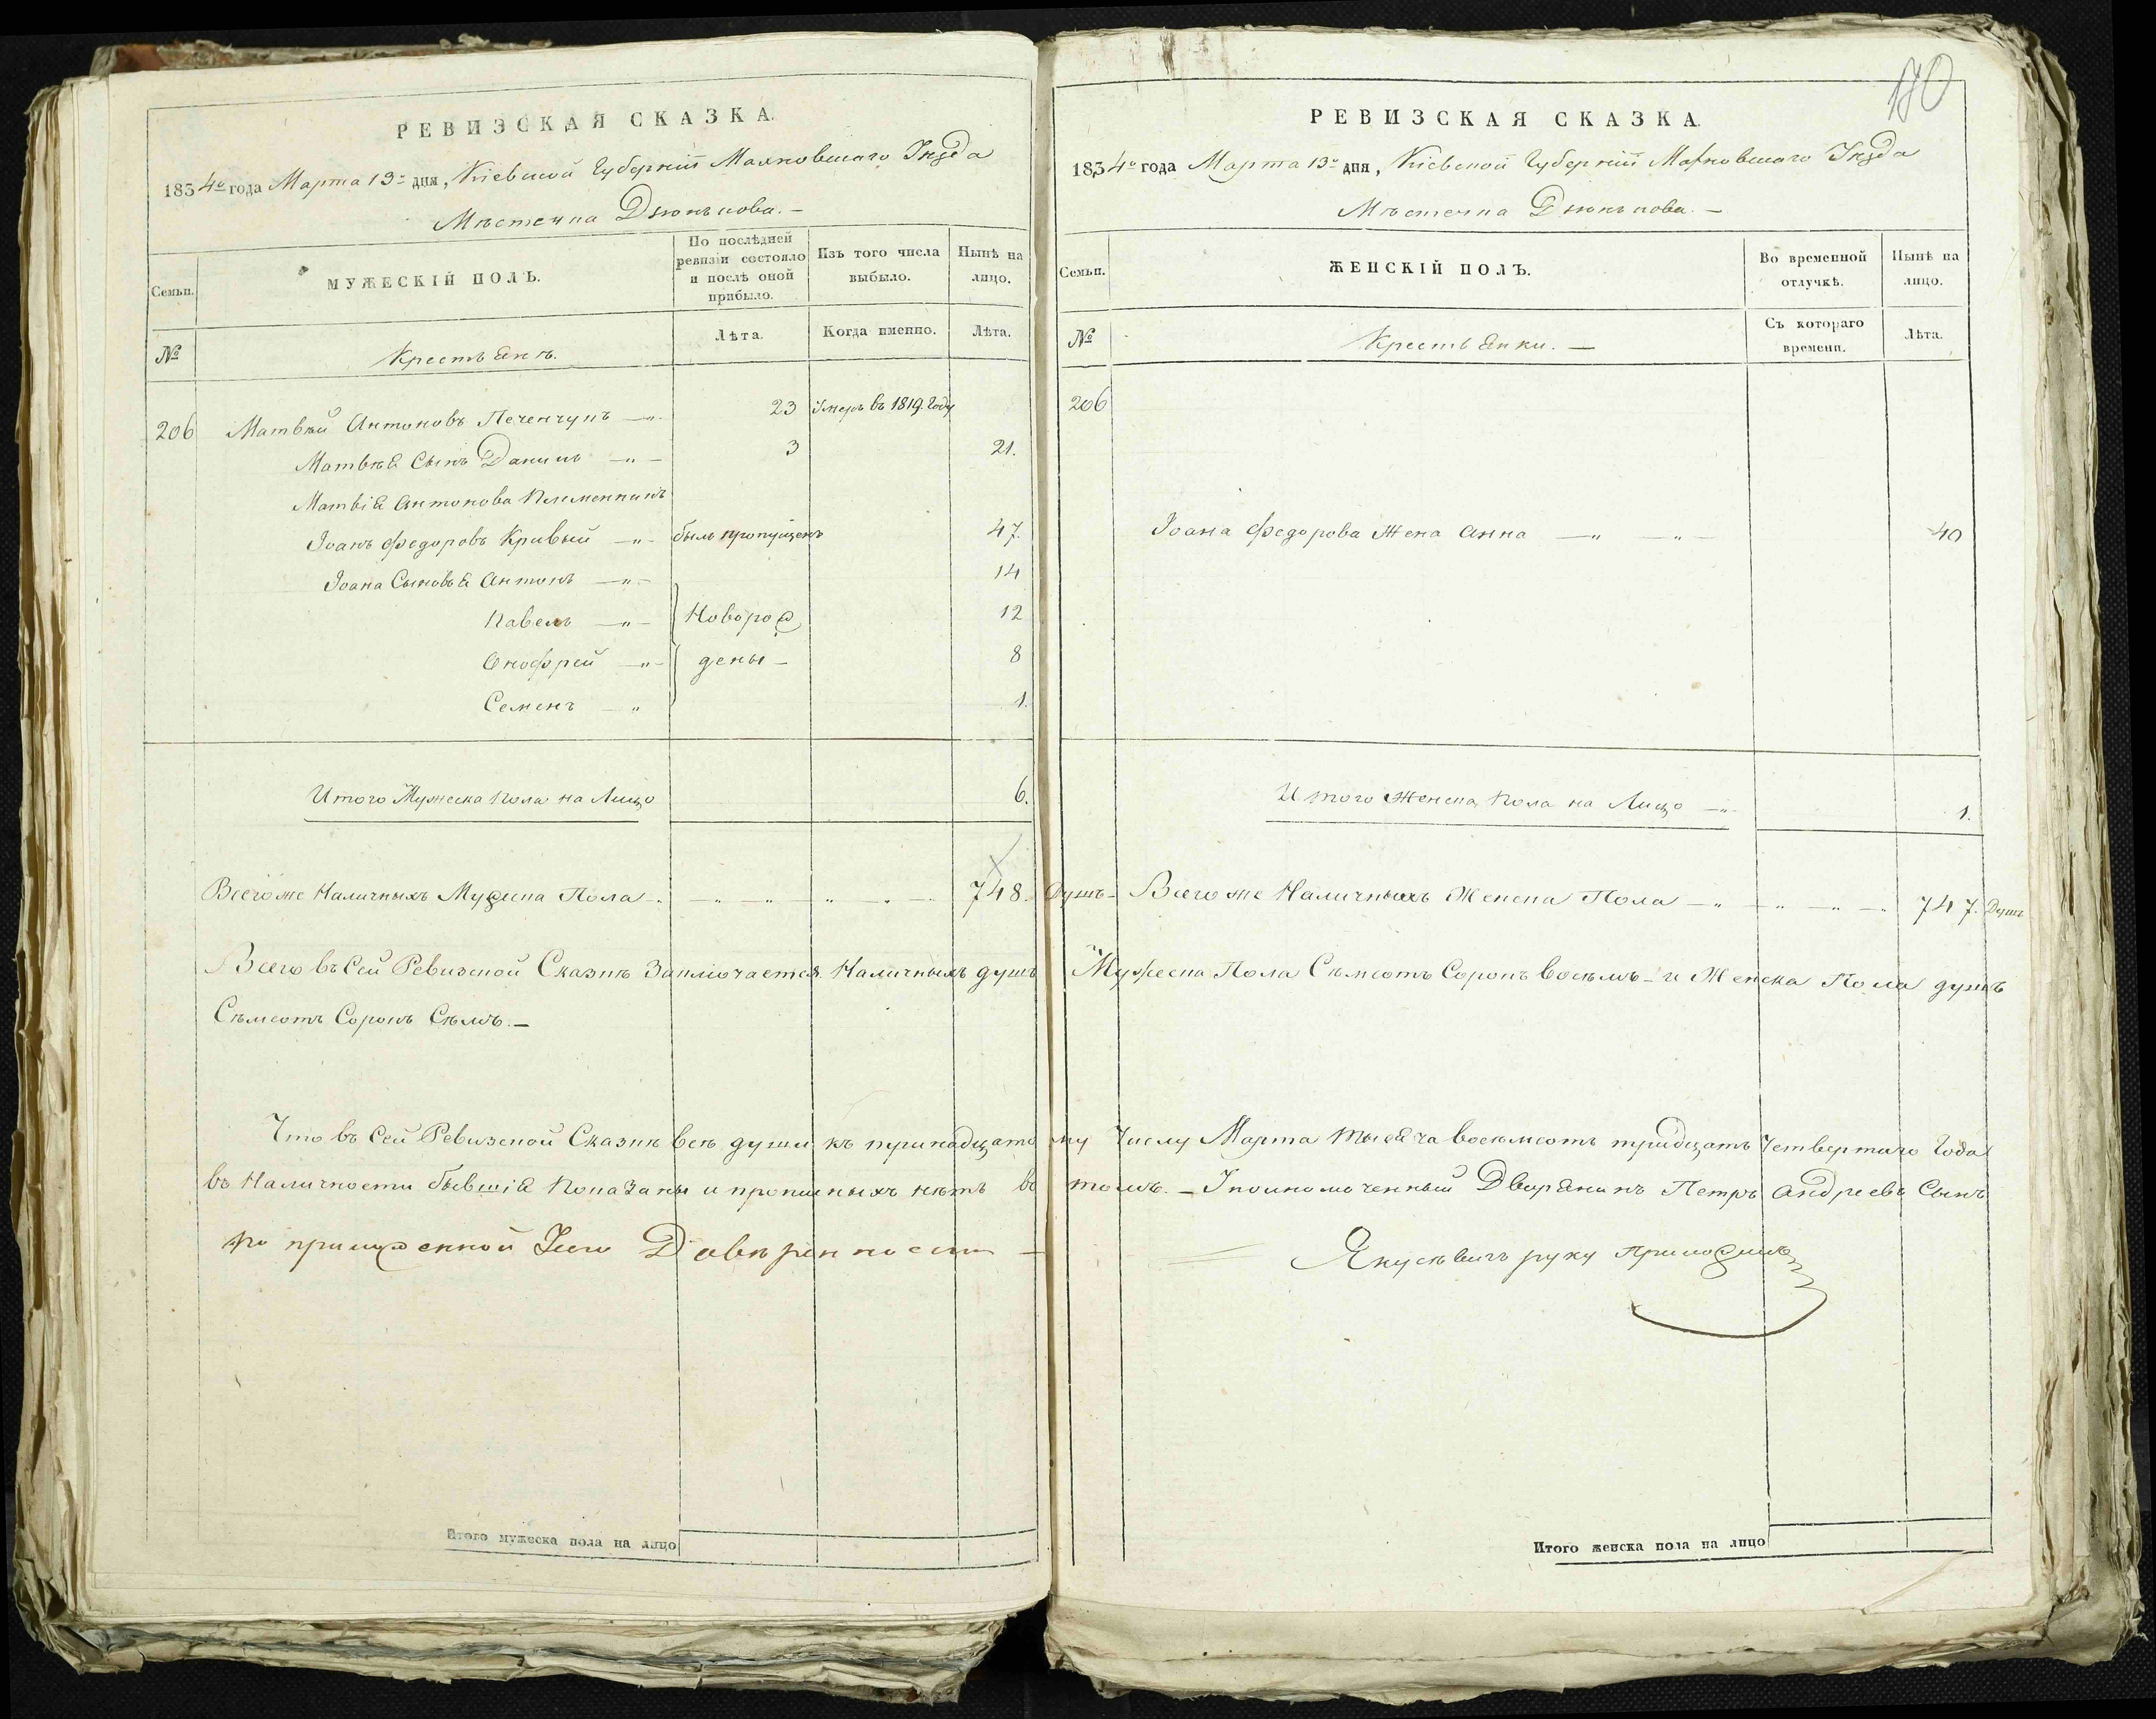 РЕВИЗСКАЯ СКАЗКА.
1834го года Марта 13го дня, Кіевской Губерніи Махновскаго Уѣзда
Мѣстечка Дзюнькова. —
Семьи.
МУЖЕСКІЙ ПОЛЪ.
По послѣдней ревизіи состояло и послѣ оной прибыло.
Изъ того числа выбыло.
Нынѣ на лицо.
№
Крестьянъ.
Лѣта.
Когда именно.
Лѣта.
206 Матвѣй Антоновъ Печенчукъ —„— 23 Умеръ въ 1819. Году
Матвѣя Сынъ Данило —„— 3 21.
Матвія Антонова Племенникъ
Іоанъ Федоровъ Кривый —„— былъ пропущенъ 47.
Іоана Сыновья Антонъ —„— 14
Павелъ —„— Новорож 12
Онофрей —„— дены — 8
Семенъ —„ 1.
Итого Мужеска Пола на Лицо 6.
Всего же Наличныхъ Мужеска Пола —„—„—„—„— 748. Душъ —
Всего въ Сей Ревизской Сказкѣ Заключается Наличныхъ душъ Мужеска Пола Сѣмсотъ Сорокъ восѣмъ — и Женска Пола душъ
Сѣмсотъ Сорокъ Сѣмъ. —
Что въ Сей Ревизской Сказкѣ всѣ души къ тринадцатому Числу Марта тысяча восемсотъ тридцать Четвертаго Года
въ Наличности бывшія Показаны и прописныхъ нѣтъ въ томъ. — Уполномоченный Дворянинъ Петръ Андреевъ Сынъ
по приложенной Уего Довѣренности — Якусѣвичъ руку приложилъ
Итого мужеска пола на лицо
180
РЕВИЗСКАЯ СКАЗКА.
1834го года Марта 13го дня, Кіевской Губерніи Махновскаго Уѣзда
Мѣстечка Дзюнькова. —
Семьи.
ЖЕНСКІЙ ПОЛЪ.
Во временной отлучкѣ.
Нынѣ на лицо.
№
Крестьянки. —
Съ котораго времени.
Лѣта.
206
Іоана Федорова Жена Анна —„— —„— 40
Итого Женска Пола на Лицо —„— 1.
Всего же Наличныхъ Женска Пола —„—„—„—„ 747. Душъ
Итого женска пола на лицо